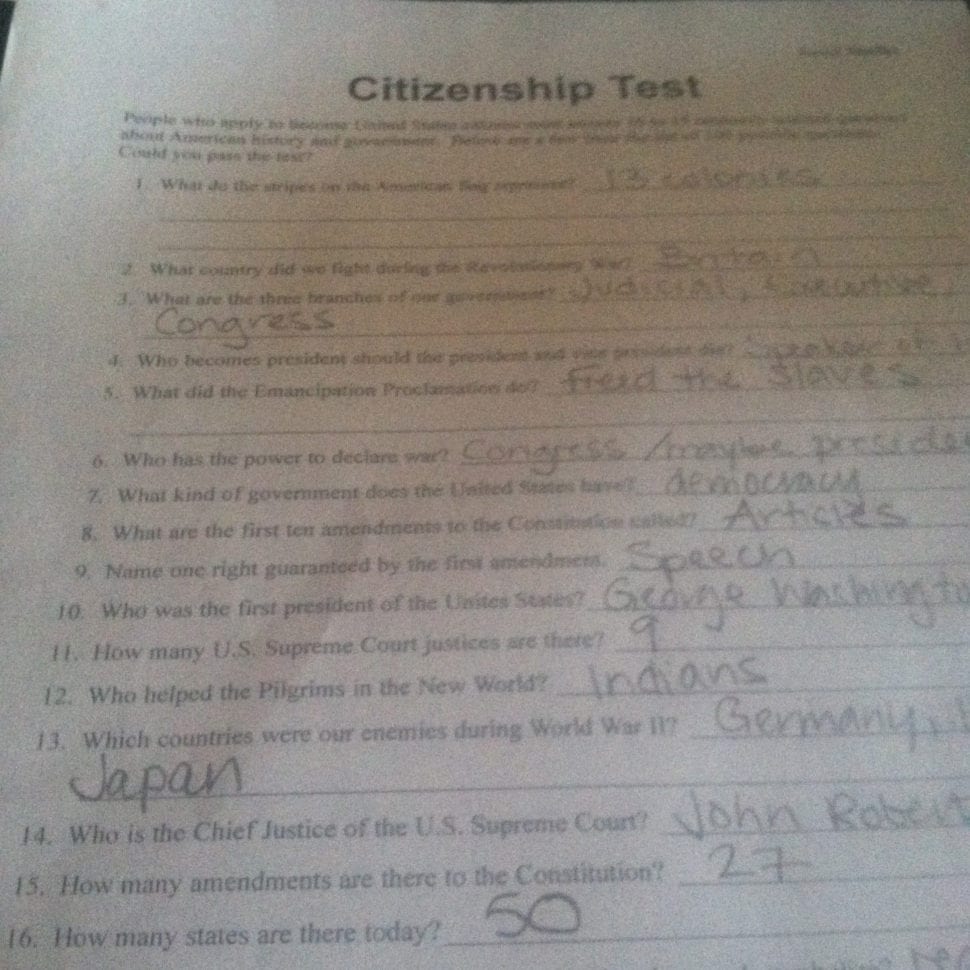 Citizenship Test
People who apply to become United States citizens must answer
about American history and government. Below are a few from the list of 100 possible questions.
Could you pass the test?
1. What do the stripes on the American flag represent? 13 colonies
2. What country did we fight during the Revolutionary War? Britain
3. What are the three branches of our government? Judicial, Executive,
Congress
4. Who becomes president should the president and vice president die? Speaker of
5. What did the Emancipation Proclamation do? freed the slaves
6. Who has the power to declare war? Congress /maybe preside
7. What kind of government does the United States have? democracy
8. What are the first ten amendments to the Constitution called? Articles
9. Name one right guaranteed by the first amendment. Speech
10. Who was the first president of the Unites States? George Washingto
11. How many U.S. Supreme Court justices are there? 9
12. Who helped the Pilgrims in the New World? Indians
13. Which countries were our enemies during World War II? Germany,
Japan
14. Who is the Chief Justice of the U.S. Supreme Court? John Robert
15. How many amendments are there to the Constitution? 27
16. How many states are there today? 50